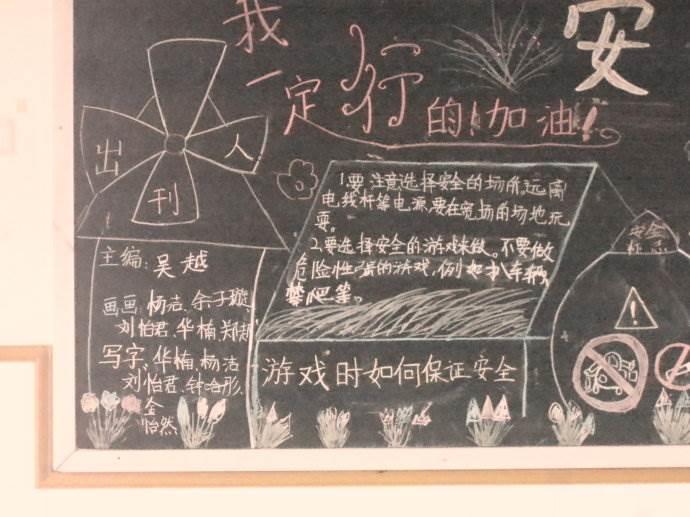 我
一定行的！加油！
安
出
刊
人
1.要注意选择安全的场所,远离
电线杆等电源,要在宽场的场地玩
耍。
2.要选择安全的游戏来做。不要做
危险性强的游戏,例如扒车辆,
攀爬等。
主编:吴越
画画:杨洁、余子璇、
刘怡君、华楠、郑
写字、华楠、杨洁
刘怡君、钟哈彤、
金
怡然
游戏时如何保证安全
安全
标志